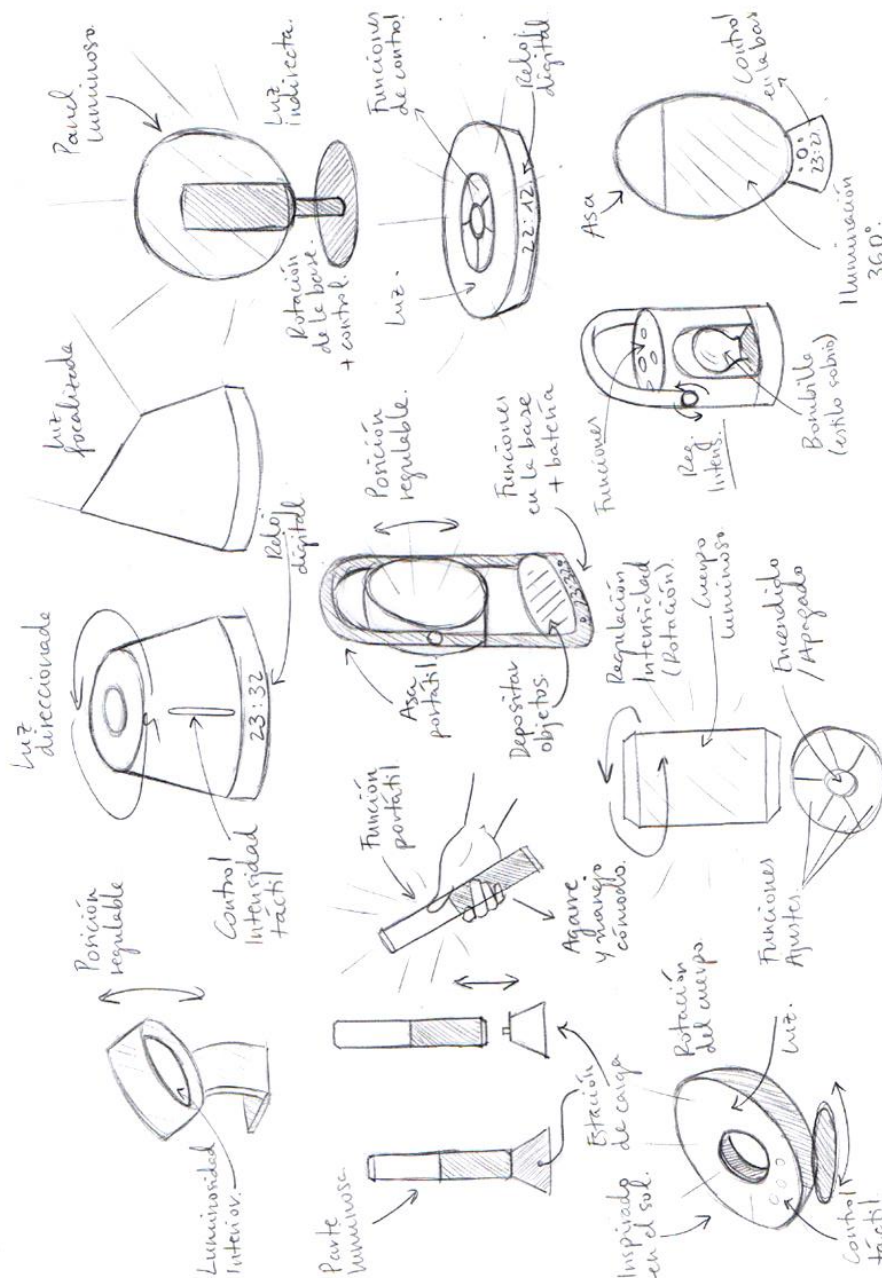 Luminosidad
Interior.
Posición
regulable
Luz
direccionade
Control
Intensidad
táctil
23:32
Reloj
digital
Luz
focalitzada
Panel
luminoso.
Luz
indirecta.
Rotación
de la base.
+ control.
Parte
luminosa
Estación
de carga
Función
portátil
Agarre
y mango
cómodo.
Asa
portátil
Depositar
objetos.
23:32
Posición
regulable.
Funciones
en la base
+ batería
Luz.
Funciones
de control
22:12
Reloj
digital
Inspirado
en el sol.
Control
táctil
Rotación
del cuerpo
Luz.
Funciones
Ajustes.
Regulación
Intensidad
(Rotación).
Cuerpo
luminoso
Encendido
/Apagado
Funciones
Reg.
Intens.
Bombilla
(estilo sobrio)
Asa
Iluminación
360º.
23:27
Control
en la bas